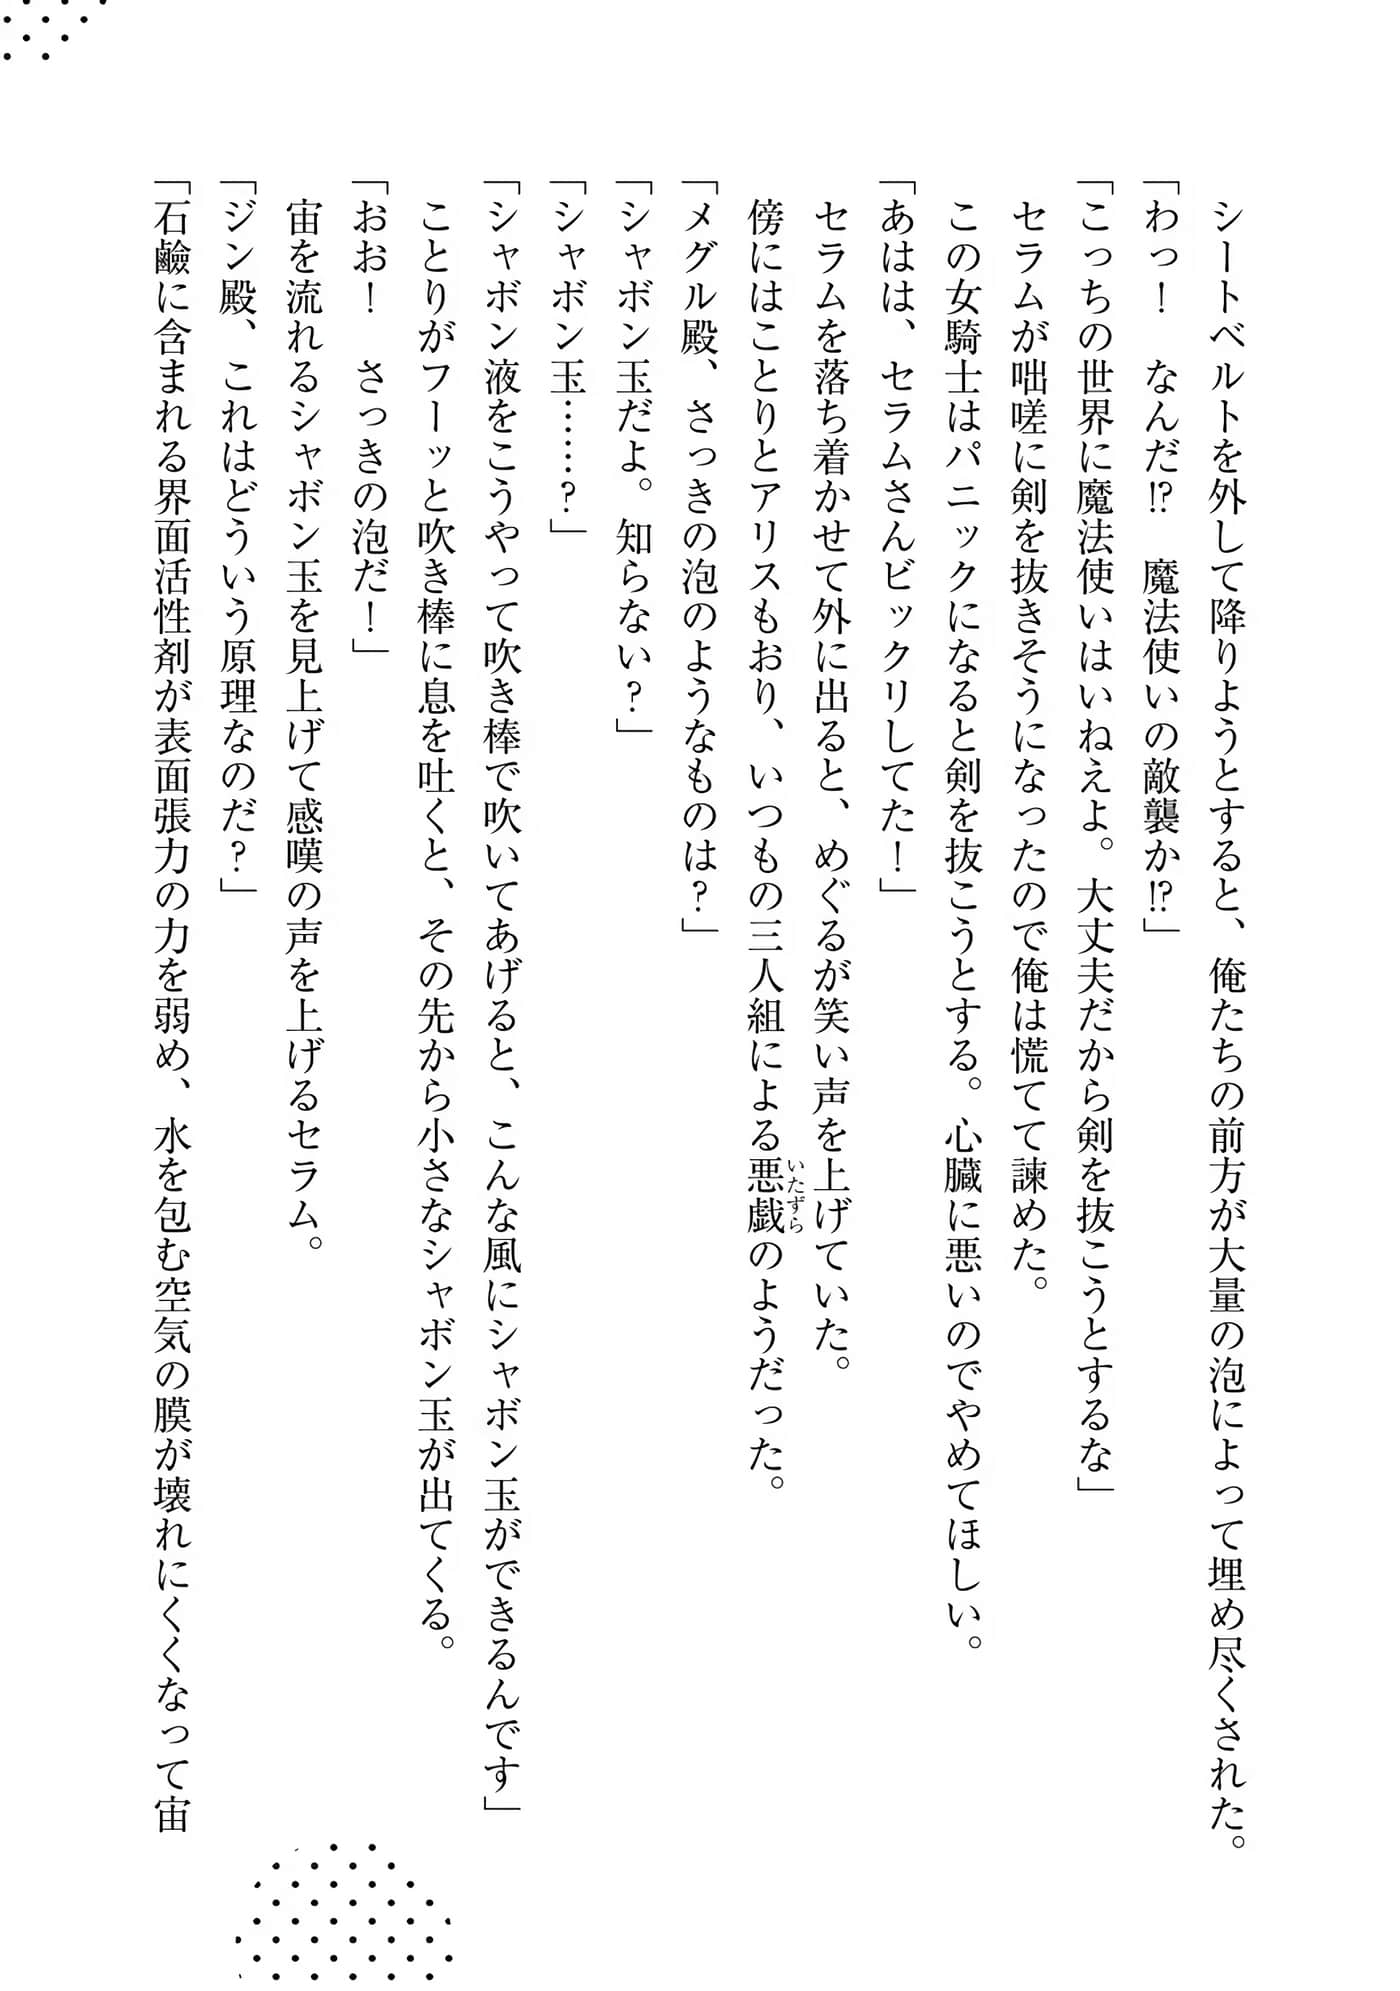 シートベルトを外して降りようとすると、俺たちの前方が大量の泡によって埋め尽くされた。
「わっ！　なんだ⁉　魔法使いの敵襲か⁉」
「こっちの世界に魔法使いはいねえよ。大丈夫だから剣を抜こうとするな」
　セラムが咄嗟に剣を抜きそうになったので俺は慌てて諫めた。
　この女騎士はパニックになると剣を抜こうとする。心臓に悪いのでやめてほしい。
「あはは、セラムさんビックリしてた！」
　セラムを落ち着かせて外に出ると、めぐるが笑い声を上げていた。
　傍にはことりとアリスもおり、いつもの三人組による悪戯のようだった。
いたずら
「メグル殿、さっきの泡のようなものは？」
「シャボン玉だよ。知らない？」
「シャボン玉……？」
「シャボン液をこうやって吹き棒で吹いてあげると、こんな風にシャボン玉ができるんです」
　ことりがフーッと吹き棒に息を吐くと、その先から小さなシャボン玉が出てくる。
「おお！　さっきの泡だ！」
　宙を流れるシャボン玉を見上げて感嘆の声を上げるセラム。
「ジン殿、これはどういう原理なのだ？」
「石鹼に含まれる界面活性剤が表面張力の力を弱め、水を包む空気の膜が壊れにくくなって宙